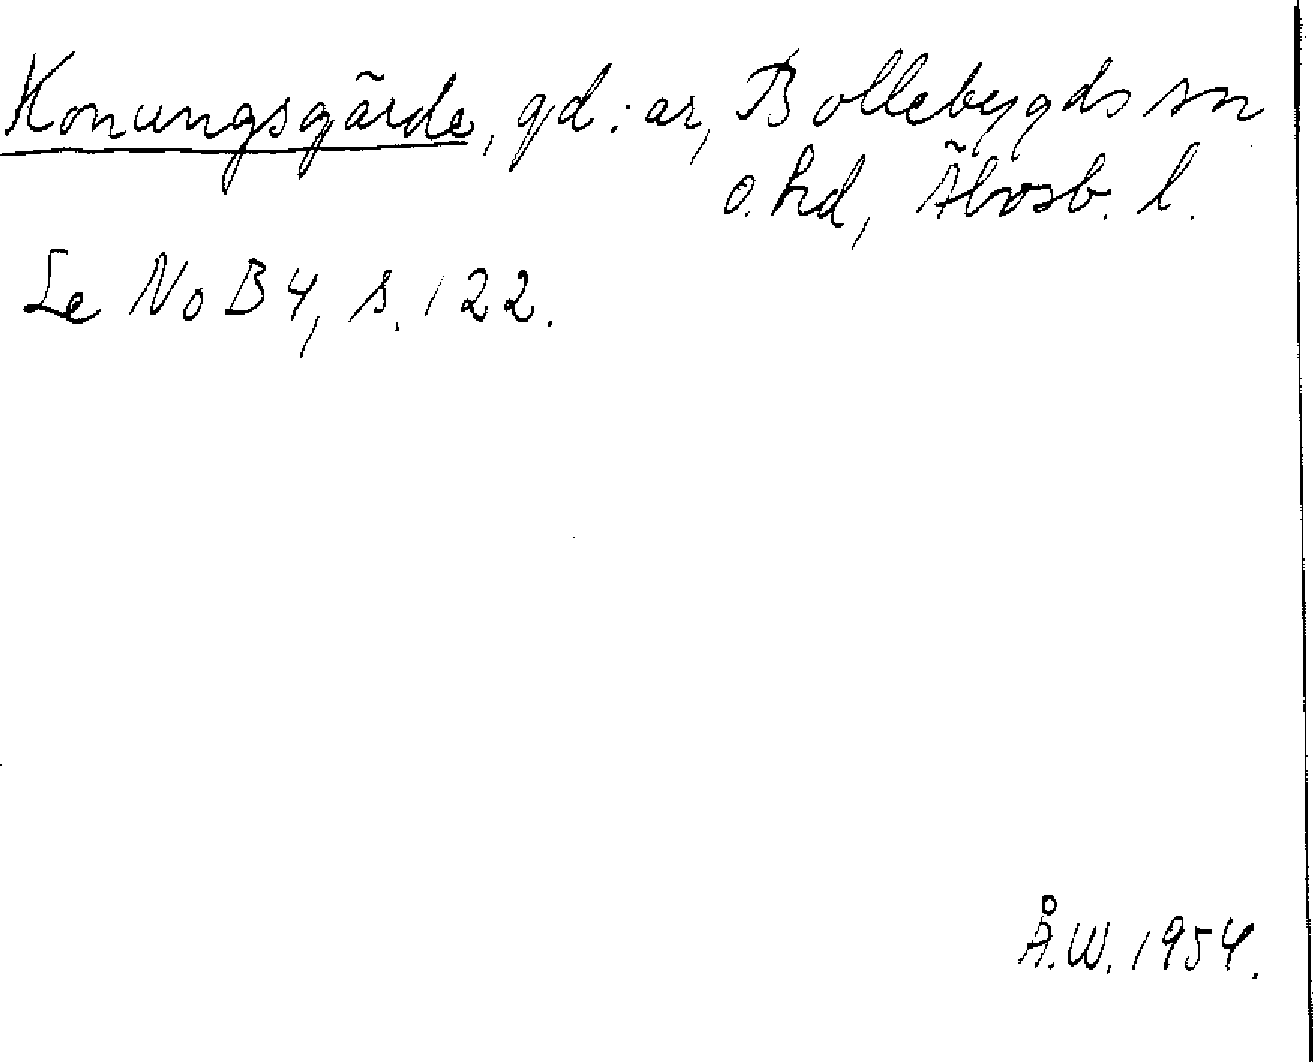 Konungsgärde, gd:ar, Bollebygds sn
o. hd, Älvsb. l.
Se NoB 4, s. 122.
Å.W. 1954.